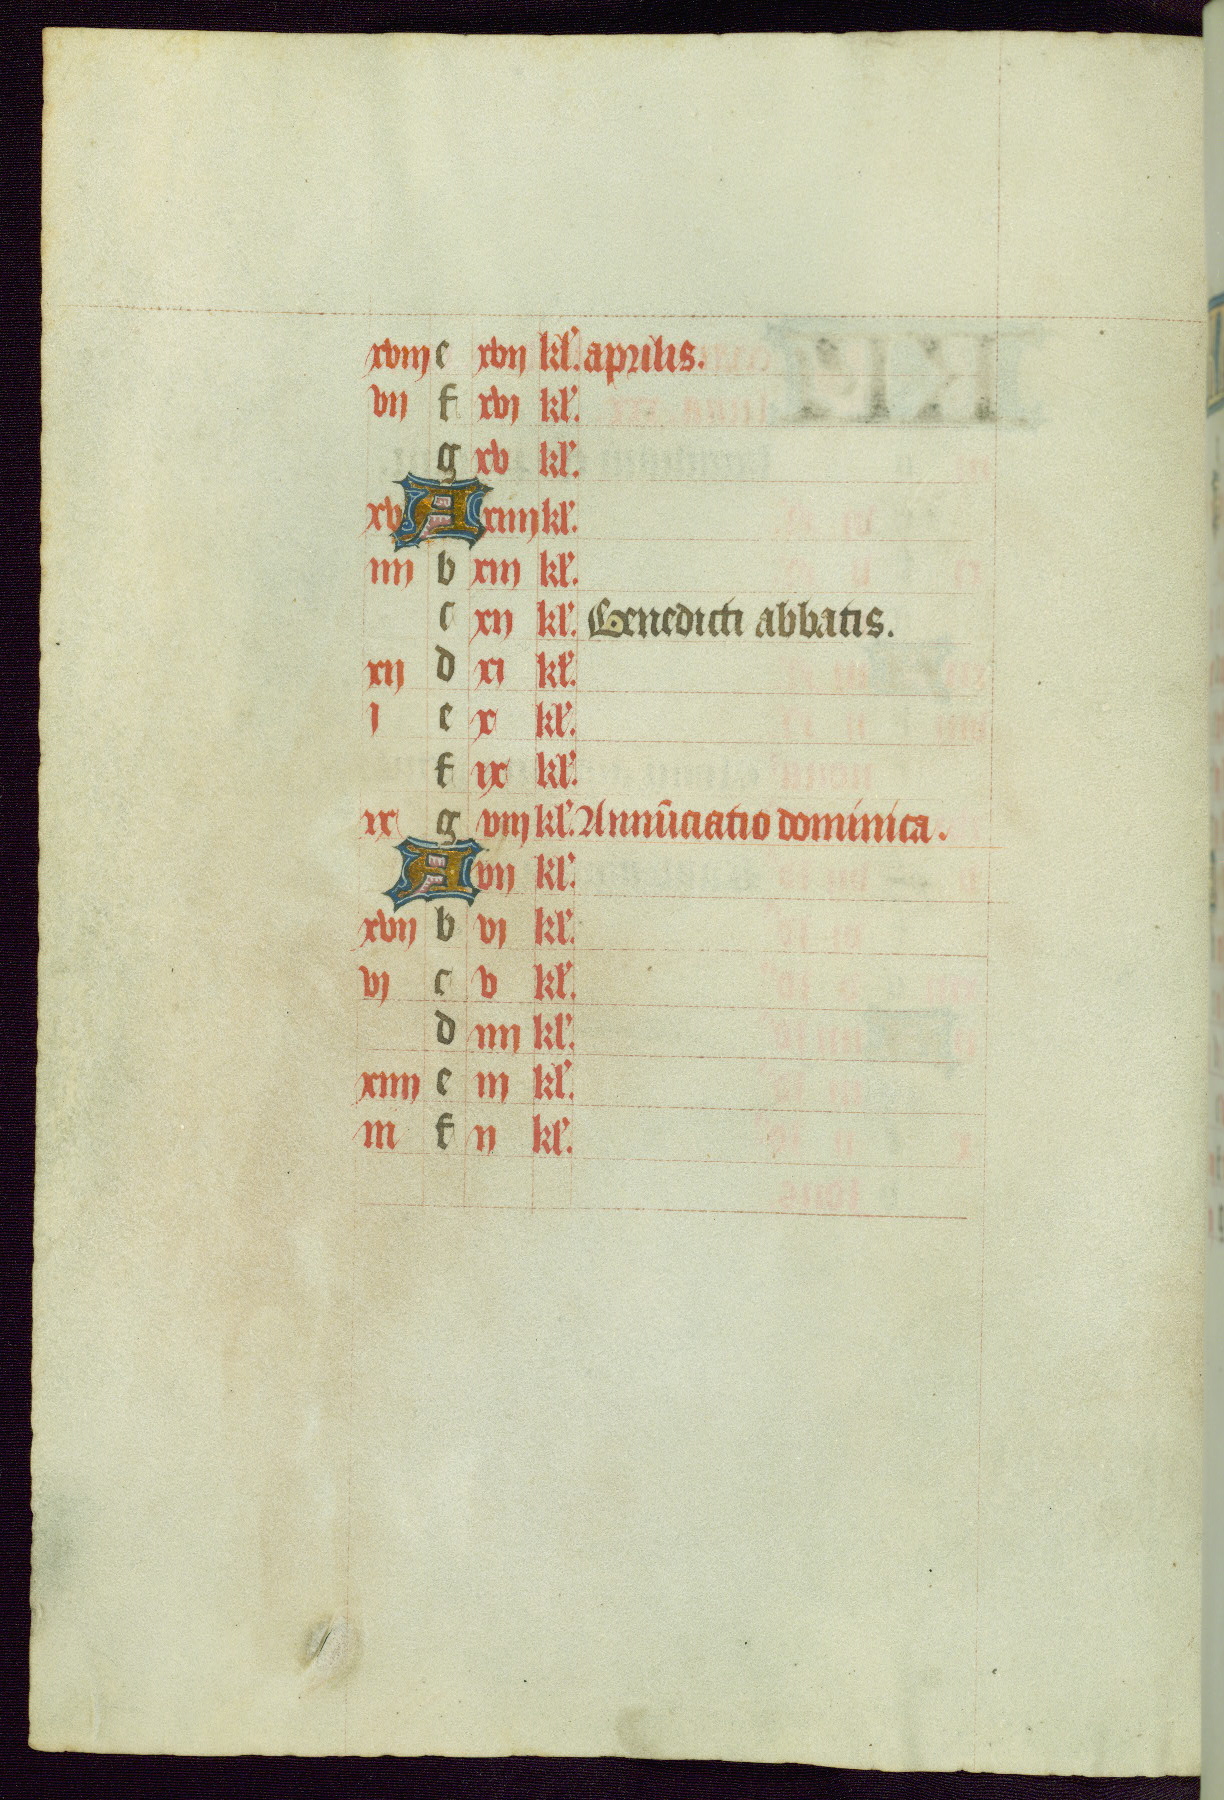 xviij e xvij kl'. aprilis.
vij f xvj kl'.
g xv kl'.
xv A xiiij kl'.
iiij b xiij kl'.
c xij kl'. Benedicti abbatis.
xij d xj kl'.
j e x kl'.
f ix kl'.
ix g viij kl'. Annūciatio dominica.
A vij kl'.
xvij b vj kl'.
vj c v kl'.
d iiij kl'.
xiiij e iij kl'.
iij f ij kl'.